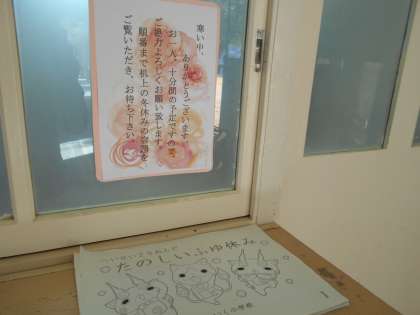 寒い中、
ありがとうございます。
お一人、十分間の予定ですので、
ご協力よろしくお願い致します。
順番まで机上の冬休みの宿題を
ご覧いただき、お待ち下さい。
たのしいふゆ休み